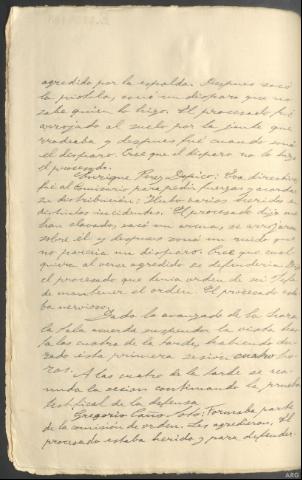 agredido por la espalda. Despues sacó
la pistola, sonó un disparo que no
sabe quien lo hizo. El procesado fué
arrojado al suelo por la gente que
rodeaba y despues fué cuando sonó
el disparo. Cree que el disparo no lo hizo
el procesado.
Enrique Perez: Era directivo
fué al Comisario para pedir fuerzas y acordar
su distribución: Hubo varios heridos en
distintos incidentes. El procesado dijo me
han clavado, sacó un arma, se arrojaron
sobre él y despues sonó un ruido que
no parecia un disparo. Cree que cual
quiera al verse agredido se defenderia.
el procesado que tenia orden de su Jefe
de mantener el orden. El procesado esta
ba nervioso.
Dado lo avanzado de la hora
la Sala acuerda suspender la vista has
ta las cuatro de la tarde, habiendo du
rado esta primera sesión cuatro ho
ras.
A las cuatro de la tarde se rea
nuda la sesion continuando la prueba
testifical de la defensa.
Gregorio Cano: Formaba parte
de la comisión de orden. Les agredieron. El
procesado estaba herido y para defender
ARG